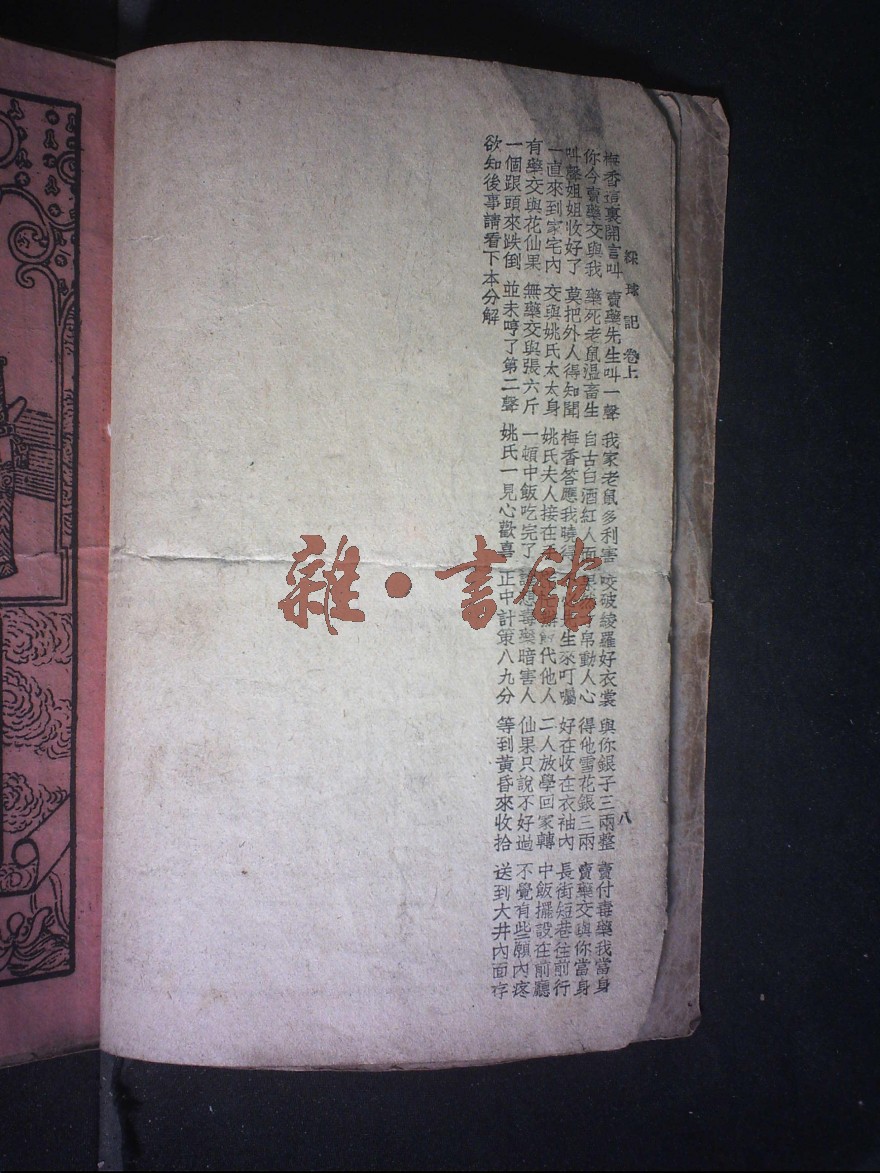 綵球記 卷上 八
梅香這裏開言叫 賣藥先生叫一聲 我家老鼠多利害 咬破綾羅好衣裳 與你銀子三兩整 賣付毒藥我當身
你今賣藥交與我 藥死老鼠溫畜生 自古白酒紅人面 帛動人心 得他雪花銀三兩 賣藥交與你當身
叫聲姐姐收好了 莫把外人得知聞 梅香答應我曉得 生來叮囑 好在收在衣袖內 長街短巷往前行
一直來到家宅內 交與姚氏太太身 姚氏夫人接在手 代他人 二人放學回家轉 中飯擺設在前廳
有藥交與花仙果 無藥交與張六斤 一頓中飯吃完了 毒藥暗害人 仙果只說不好過 不覺有些願內疼
一個跟頭來跌倒 並未哼了第二聲 姚氏一見心歡喜 正中計策八九分 等到黃昏來收拾 送到大井內面存
欲知後事請看下本分解
雜·書館